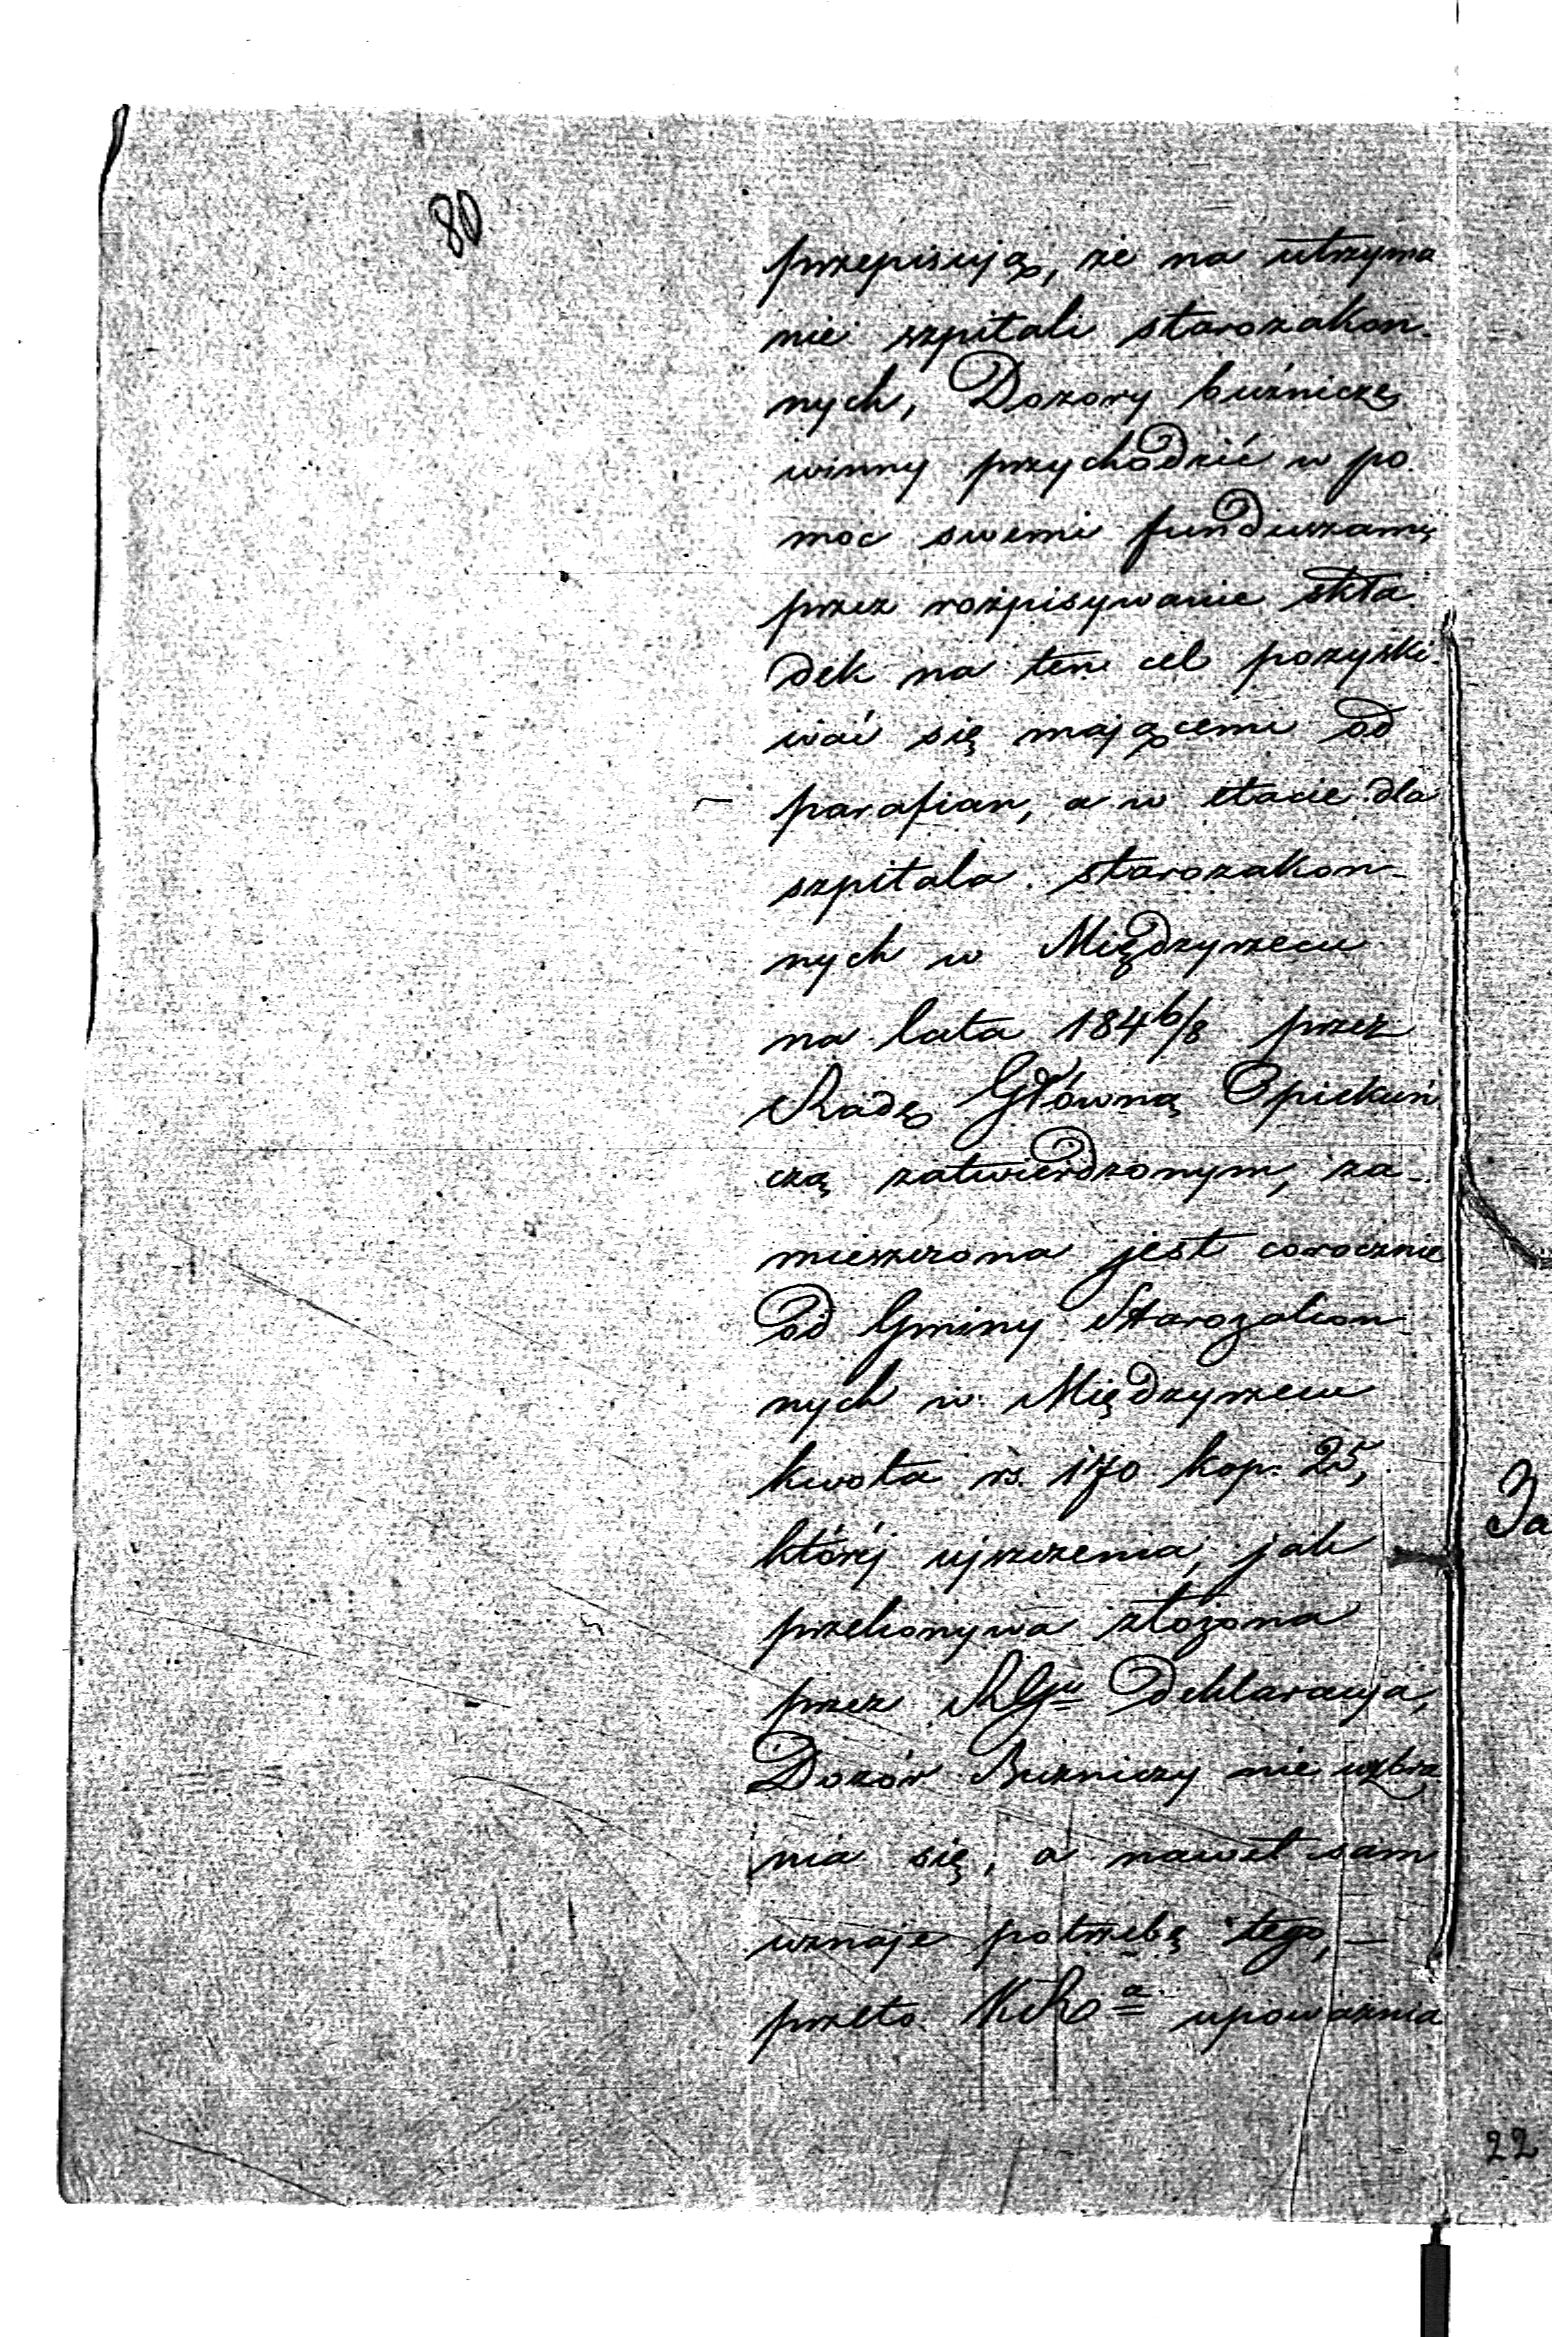 80
przepisują, że na utrzyma
nie szpitali starozakon-
nych, Dozory bużnicze
winny przychodzić w po
moc swemi funduszami
przez rozpisywanie skła
dek na ten cel pozyski-
wać się mającemi od
parafian, a w etacie dla
szpitala starozakon-
nych w Międzyrzecu
na lata 184 6/8 przez
Radę Główną Opiekuń
czą zatwierdzonym, za-
mieszczona jest corocznie
od Gminy Starozakon-
nych w Międzyrzecu
kwota rs. 170 kop. 25,
której ujszczenia, jak
przekonywa złożona
przez deklaracyja,
Dozór Bużniczy nie wzbra
nia się, a nawet sam
uznaje potrzebę tego, —
przeto upoważnia
Za
22